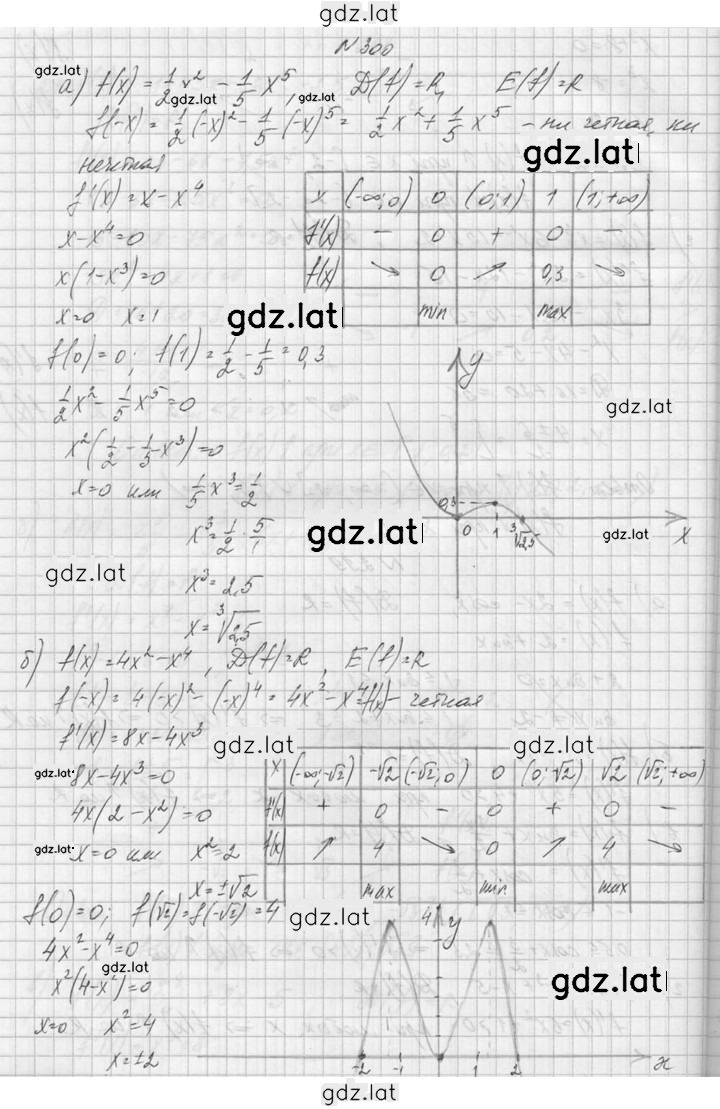 gdz.lat
N 300
gdz.lat
а) f(x) = 1/2 x² − 1/5 x⁵, D(f) = R, E(f) = R
gdz.lat
gdz.lat
f(−x) = 1/2 (−x)² − 1/5 (−x)⁵ = 1/2 x² + 1/5 x⁵ – ни четная, ни
нечетная
gdz.lat
f'(x) = x − x⁴
x − x⁴ = 0
x(1 − x³) = 0
x = 0 x = 1
x (−∞; 0) 0 (0; 1) 1 (1; +∞)
f'(x) − 0 + 0 −
f(x) ↘ 0 ↗ 0,3 ↘
min max
gdz.lat
f(0) = 0; f(1) = 1/2 − 1/5 = 0,3
1/2 x² − 1/5 x⁵ = 0
x²(1/2 − 1/5 x³) = 0
x = 0 или 1/5 x³ = 1/2
x³ = 1/2 · 5/1
x³ = 2,5
x = ³√2,5
y
gdz.lat
0,3
0 1 ³√2,5 x
gdz.lat
gdz.lat
gdz.lat
б) f(x) = 4x² − x⁴, D(f) = R, E(f) = R
f(−x) = 4(−x)² − (−x)⁴ = 4x² − x⁴ = f(x) – четная
f'(x) = 8x − 4x³
gdz.lat
gdz.lat
gdz.lat
8x − 4x³ = 0
4x(2 − x²) = 0
gdz.lat
x = 0 или x² = 2
x = ±√2
x (−∞; −√2) −√2 (−√2; 0) 0 (0; √2) √2 (√2; +∞)
f'(x) + 0 − 0 + 0 −
f(x) ↗ 4 ↘ 0 ↗ 4 ↘
max min max
f(0) = 0; f(√2) = f(−√2) = 4
gdz.lat
4x² − x⁴ = 0
gdz.lat
x²(4 − x²) = 0
x = 0 x² = 4
x = ±2
4 y
gdz.lat
−2 −1 1 2 x
gdz.lat